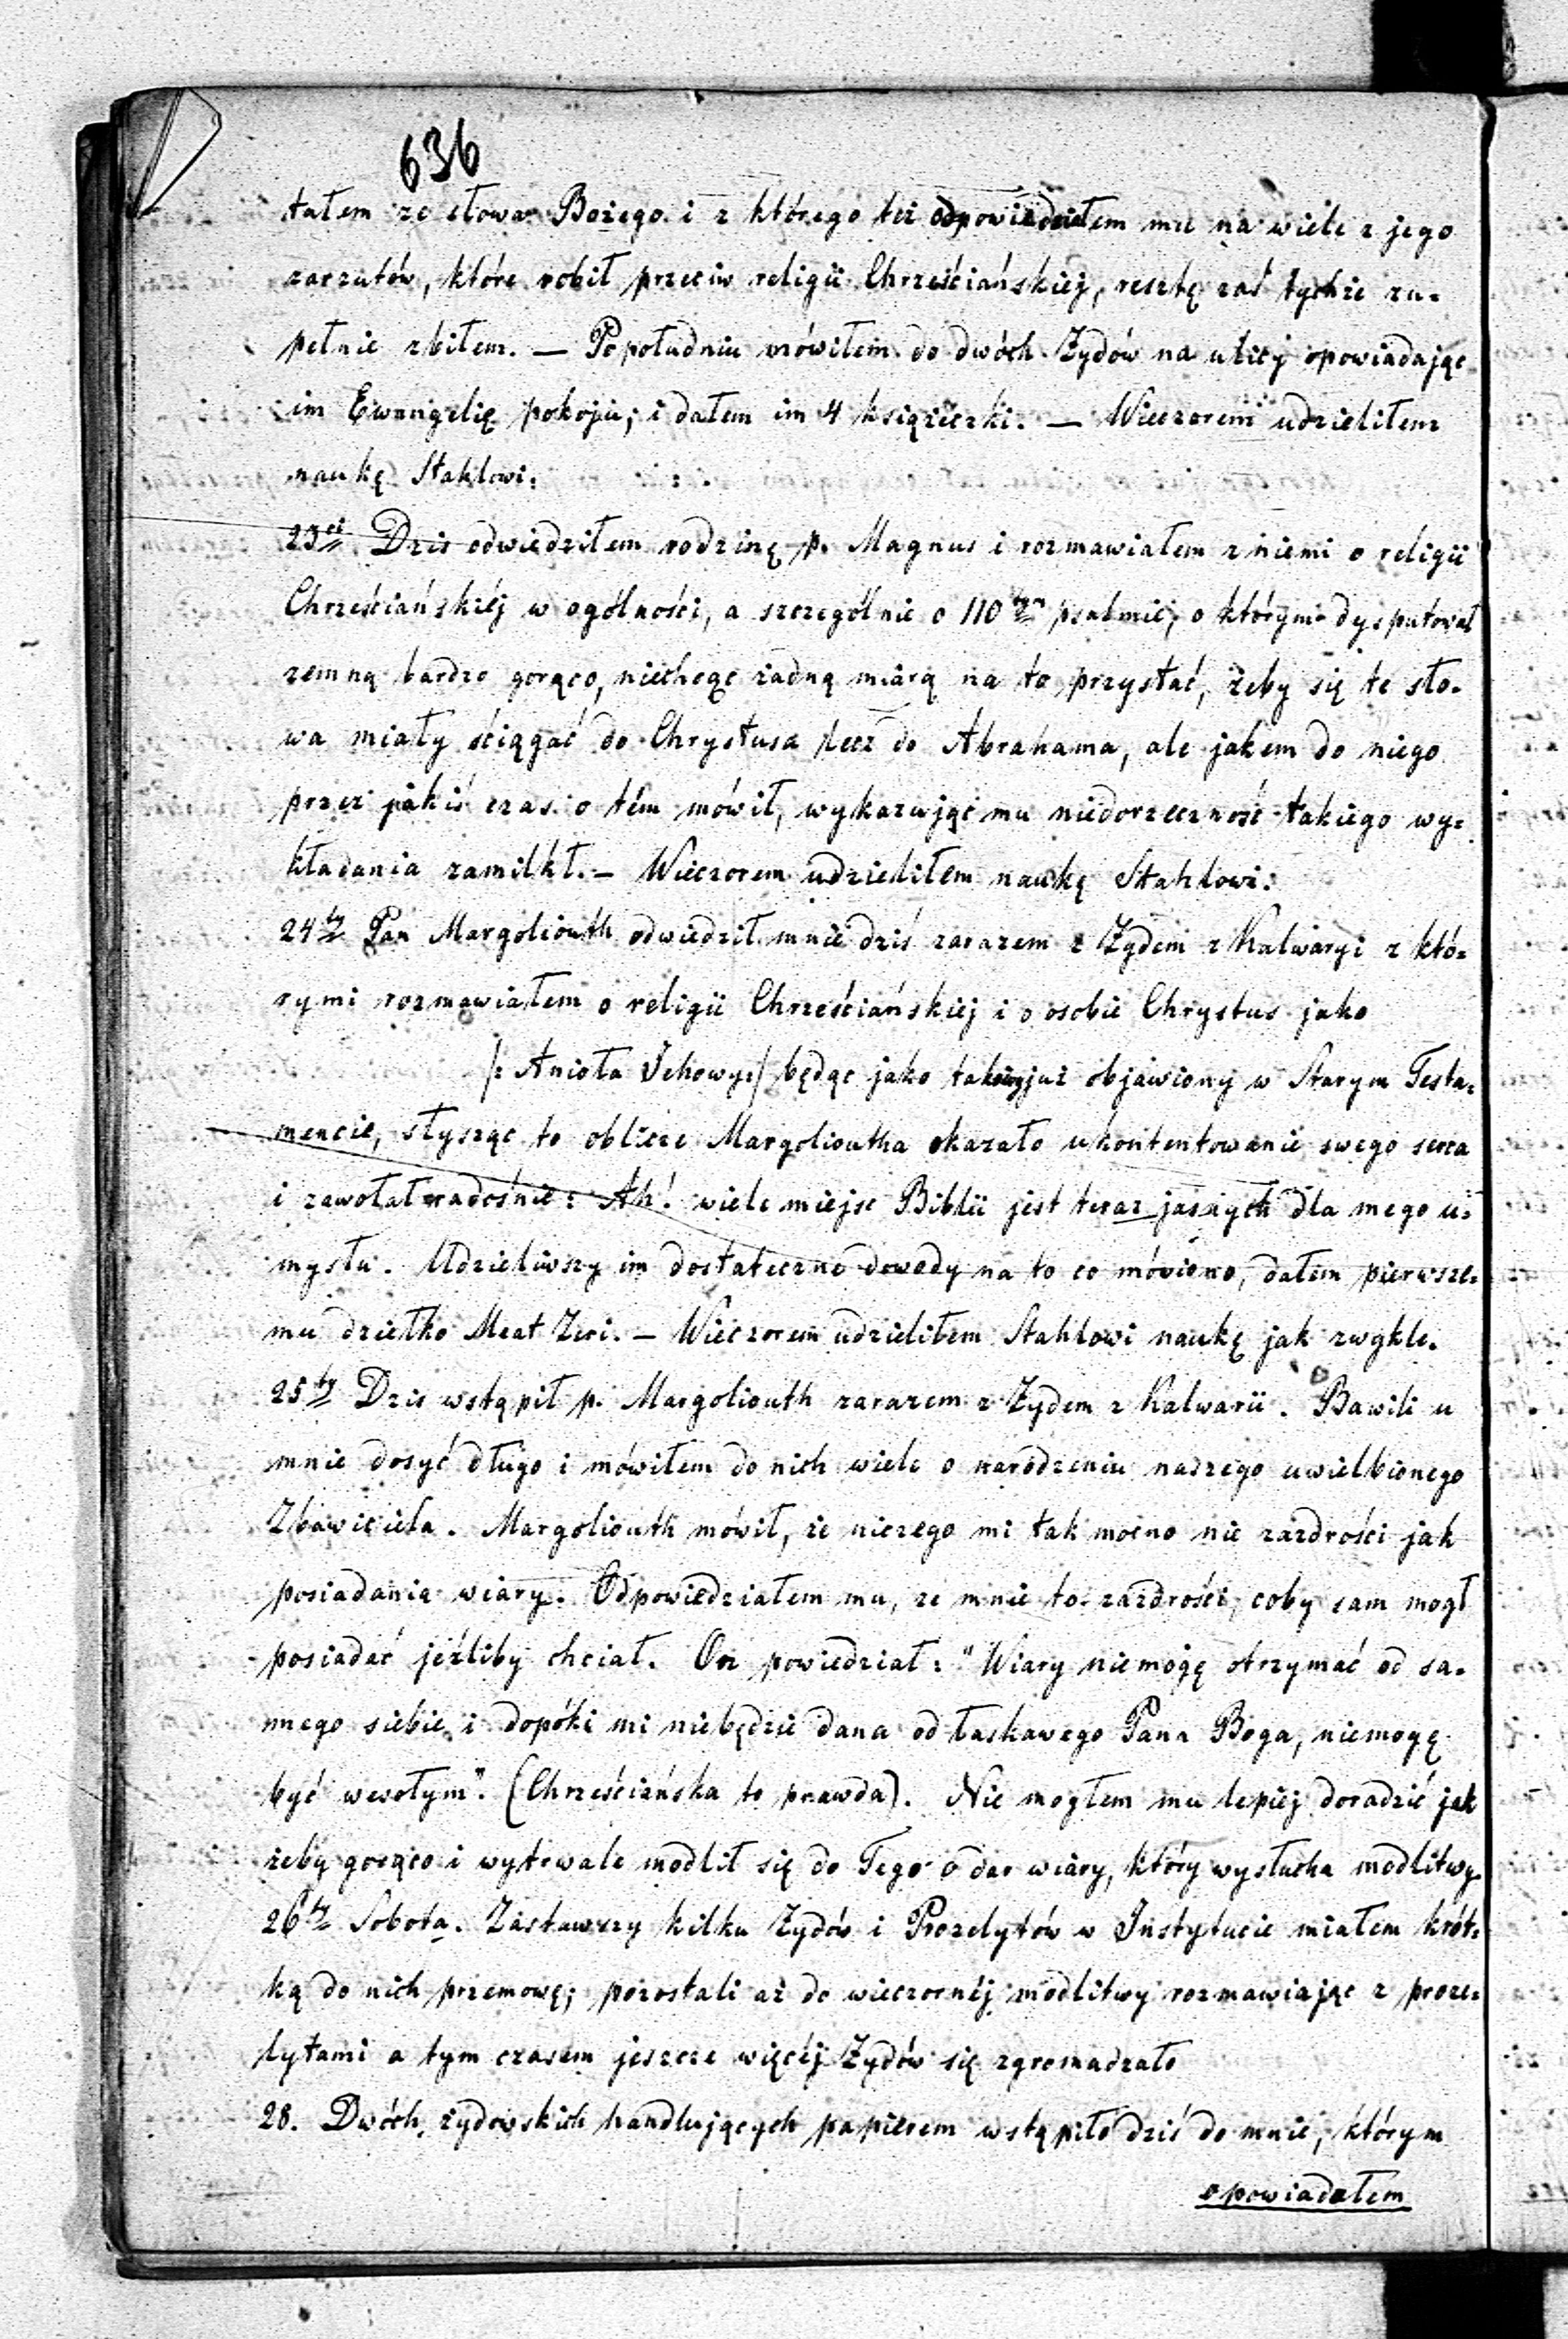 636
tałem ze słowa Bożego i z którego też odpowiedziałem mu na wiele z jego
zarzutów, które robił przeciw religii Chrześciańskiej, resztę zaś tychże zu=
pełnie zbiłem. — Popołudniu mówiłem do dwóch Żydów na ulicy opowiadając
im Ewangelię pokoju; i dałem im 4 książeczki. — Wieczorem udzieliłem
naukę Stahlowi.
23ci Dziś odwiedziłem rodzinę p. Magnus i rozmawiałem z niemi o religii
Chrześciańskiéj w ogólności, a szczególnie o 110tym psalmie, o którym dysputował
zemną bardzo gorąco, niechcąc żadną miarą na to przystać, żeby się te sło=
wa miały ściągać do Chrystusa lecz do Abrahama, ale jakem do niego
przez jakiś czas o tém mówił, wykazując mu niedorzeczność takiego wy=
kładania zamilkł. — Wieczorem udzieliłem naukę Stahlowi.
24ty Pan Margoliouth odwiedził mnie dziś zarazem z Żydem z Kalwaryi z któ=
rymi rozmawiałem o religii Chrześciańskiej i o osobie Chrystus jako
/: Anioła Jehowy :/ będąc jako już objawiony w Starym Testa=
mencie, słysząc to oblicze Margolioutha okazało ukontentowanie swego serca
i zawołał radośnie: Ah! wiele miejsc Biblii jest teraz jasnych dla mego u=
mysłu. Udzieliwszy im dostateczne dowody na to co mówiono, dałem pierwsze=
mu dziełko Meat Zeri. — Wieczorem udzieliłem Stahlowi naukę jak zwykle.
25ty Dzis wstąpił p. Margoliouth zarazem z Żydem z Kalwarii. Bawili u
mnie dosyć długo i mówiłem do nich wiele o narodzeniu naszego uwielbionego
Zbawiciela. Margoliouth mówił, że niczego mi tak mocno nie zazdrości jak
posiadania wiary. Odpowiedziałem mu, ze mnie to zazdrości, coby sam mogł
posiadać jeźliby chciał. On powiedział: "Wiary niemogę otrzymać od sa=
mego siebie i dopóki mi niebędzie dana od łaskawego Pana Boga, niemogę
być wesołym". (Chrześciańska to prawda). Nie mogłem mu lepiej doradzić jak
żeby gorąco i wytrwale modlił się do Tego o dar wiary, który wysłucha modlitwy.
26ty Sobota. Zastawszy kilku Żydów i Prozelytów w Instytucie miałem krót=
ką do nich przemowę; pozostali aż do wieczornéj modlitwy rozmawiając z proze=
lytami a tym czasem jeszcze więcéj Żydów się zgromadzało
28. Dwóch żydowskich handlujących papierem wstąpiło dziś do mnie, którym
opowiadałem